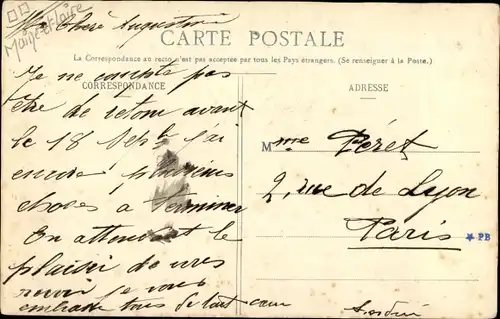 Maine et Loire
Ma chère Augustine
CARTE POSTALE
La Correspondance au recto n'est pas acceptée par tous les Pays étrangers. (Se renseigner à la Poste.)
CORRESPONDANCE
Je ne compte pas
être de retour avant
le 18 Sept j'ai
encore plusieurs
choses à terminer
En attendant le
plaisir de vous
revoir je vous
embrasse tous de tout cœur
ADRESSE
Mme Péret
2, rue de Lyon
Paris
PB